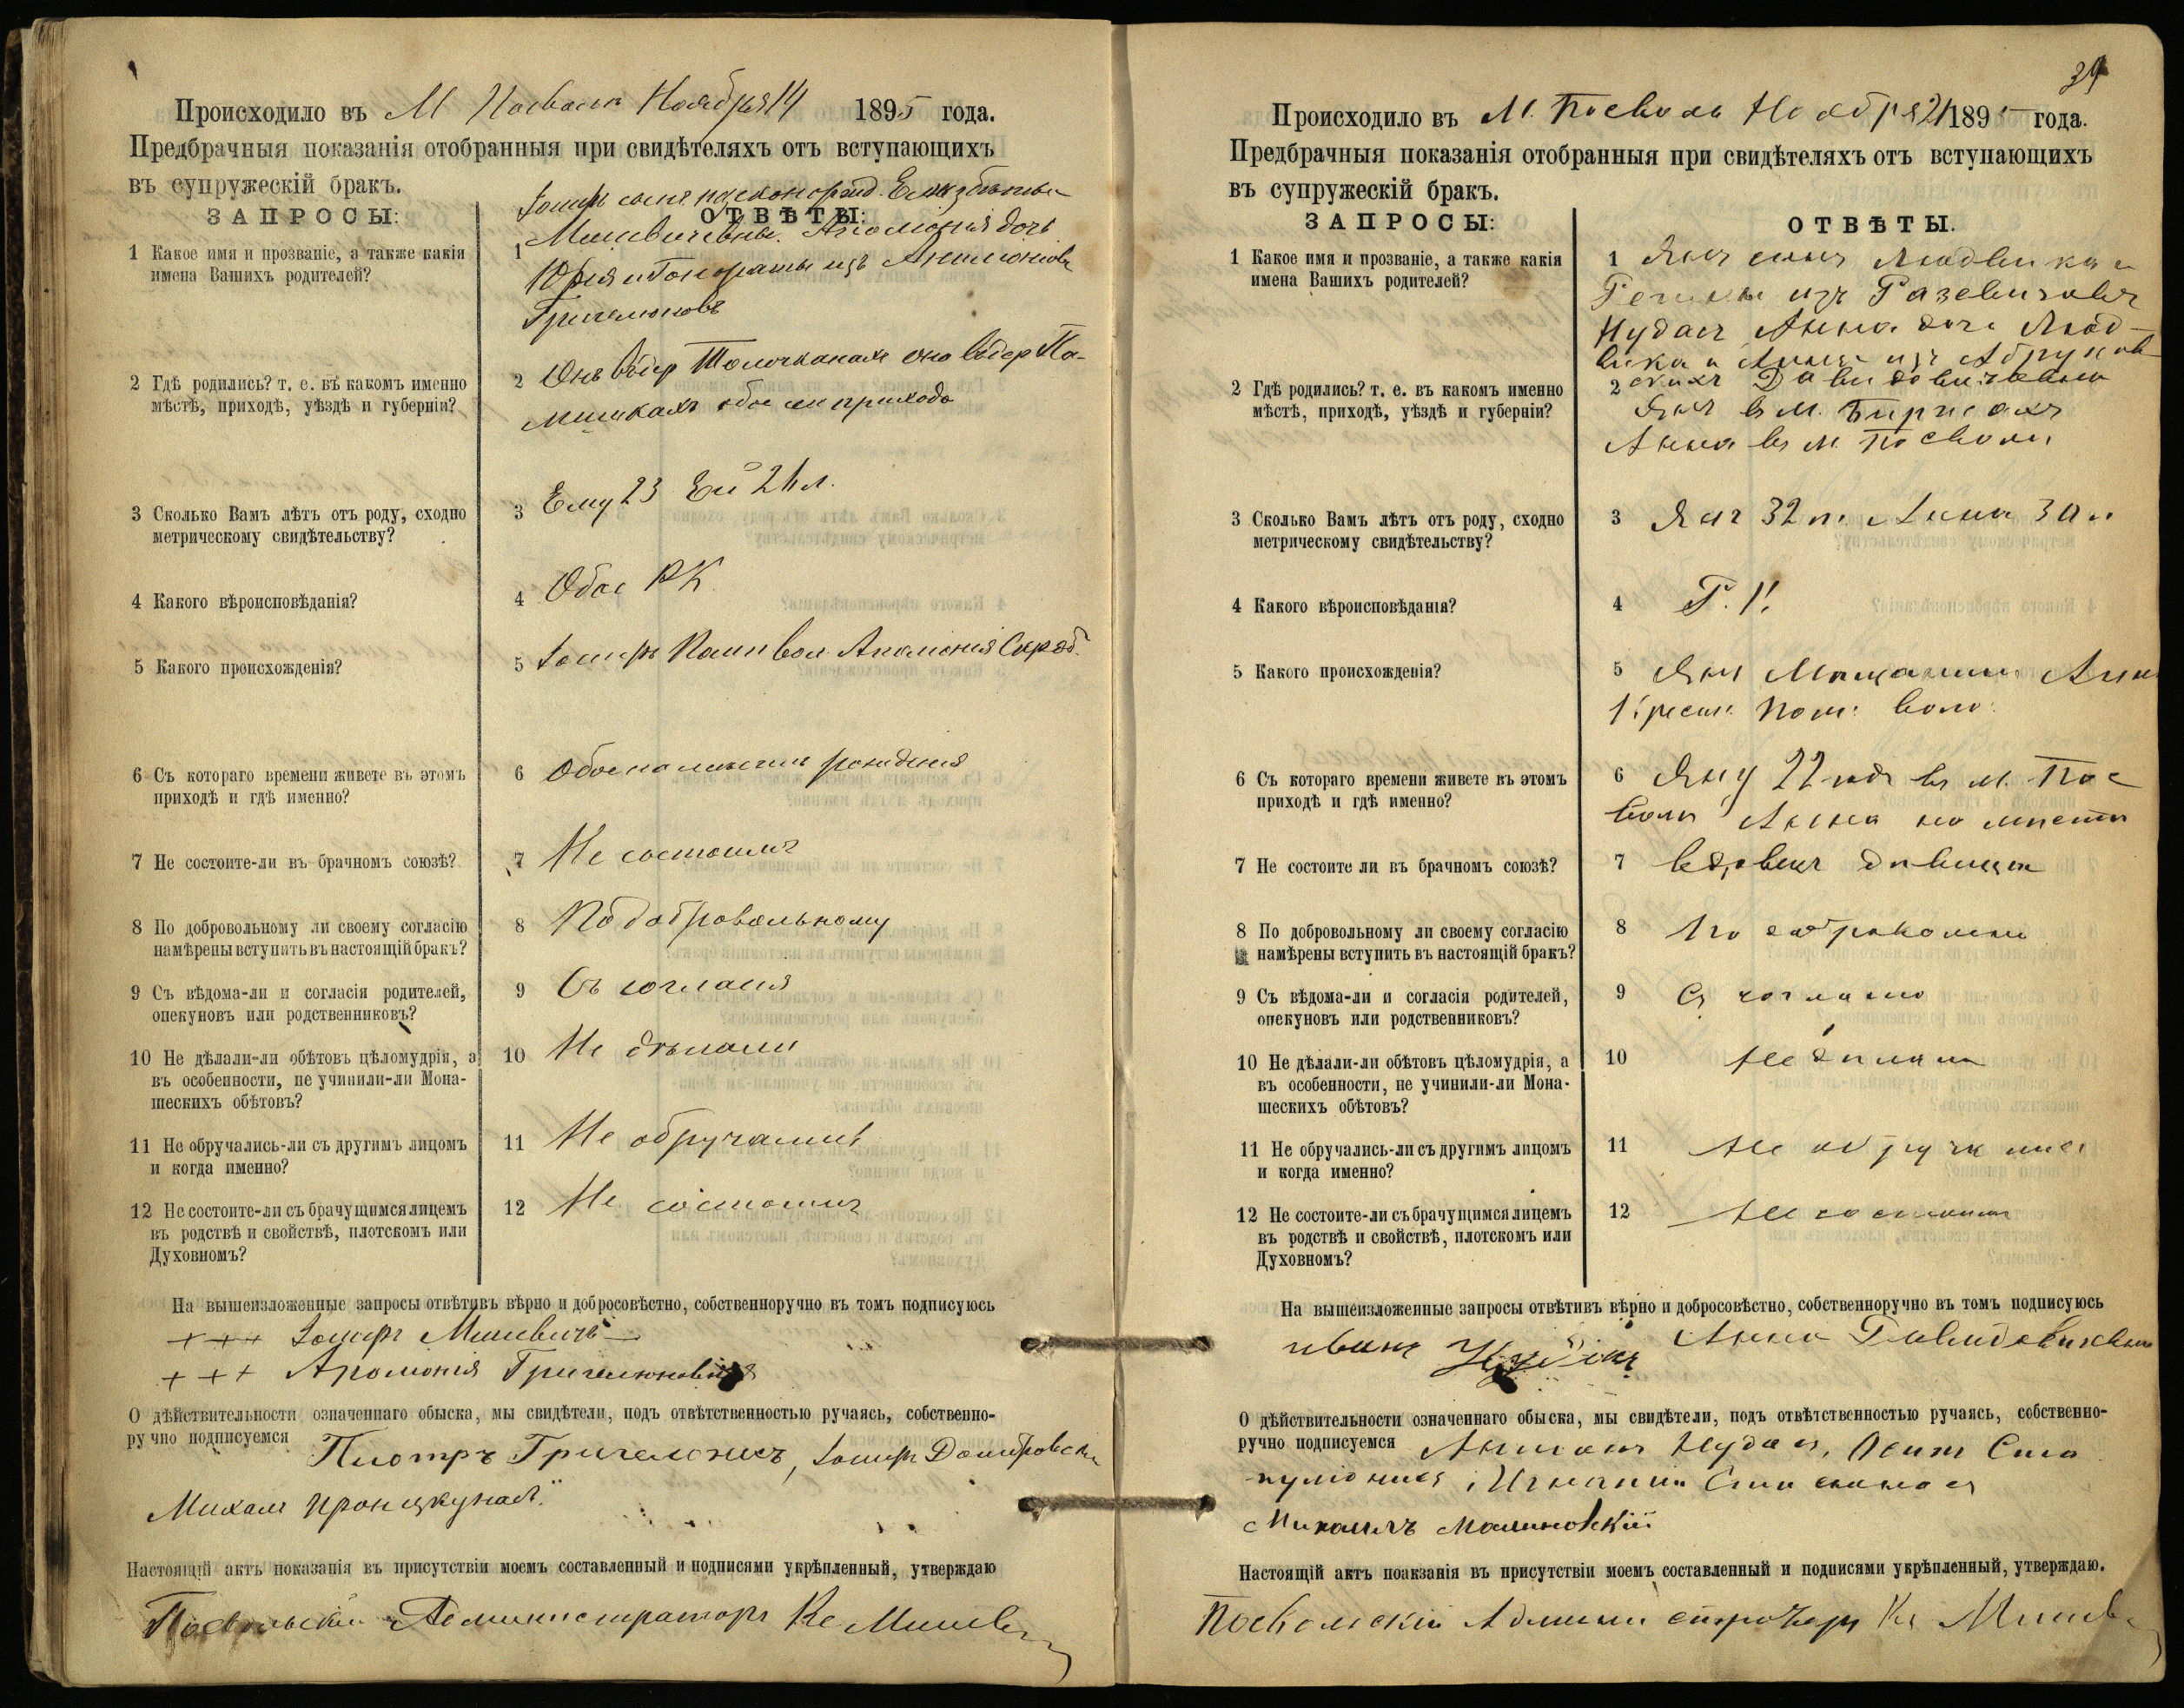 Происходило въ М Посволь Ноября 14 1895 года.
Предбрачныя показанія отобранныя при свидѣтеляхъ отъ вступающихъ
въ супружескій бракъ.
ЗАПРОСЫ:
ОТВѢТЫ:
1 Какое имя и прозваніе, а также какія
имена Вашихъ родителей?
1 Іосифъ сынъ Елизбѣты
Мишевичевны. Аполонія дочь
Юрія и Гонораты изъ
2 Гдѣ родились? т. е. въ какомъ именно
мѣстѣ, приходѣ, уѣздѣ и губерніи?
2 Онъ въ дер она въ дер Па-
мишкахъ прихода
3 Сколько Вамъ лѣтъ отъ роду, сходно
метрическому свидѣтельству?
3 Ему 23 Ей 21 л.
4 Какого вѣроисповѣданія?
4 Обое РК
5 Какого происхожденія?
5 Іосифъ вол Аполонія
6 Съ котораго времени живете въ этомъ
приходѣ и гдѣ именно?
6 Обое рожденія
7 Не состоите-ли въ брачномъ союзѣ?
7 Не состоимъ
8 По добровольному ли своему согласію
намѣрены вступить въ настоящій бракъ?
8 По добровольному
9 Съ вѣдома-ли и согласія родителей,
опекуновъ или родственниковъ?
9 Съ согласія
10 Не дѣлали-ли обѣтовъ цѣломудрія, а
въ особенности, не учинили-ли Мона-
шескихъ обѣтовъ?
10 Не дѣлали
11 Не обручались-ли съ другимъ лицомъ
и когда именно?
11 Не обручались
12 Не состоите-ли съ брачущимся лицемъ
въ родствѣ и свойствѣ, плотскомъ или
Духовномъ?
12 Не состоимъ
На вышеизложенные запросы отвѣтивъ вѣрно и добросовѣстно, собственноручно въ томъ подписуюсь
+++ Іосифъ Мишевичъ
+++ Аполонія
О дѣйствительности означеннаго обыска, мы свидѣтели, подъ отвѣтственностью ручаясь, собственно-
ручно подписуемся Піотръ Іосифъ Домбровски
Михалъ
Настоящій актъ показанія въ присутствіи моемъ составленный и подписями укрѣпленный, утверждаю
Посвольскій Администраторъ Кс Мишев
39
Происходило въ М. Посволь Ноября 21 1895 года.
Предбрачныя показанія отобранныя при свидѣтеляхъ отъ вступающихъ
въ супружескій бракъ.
ЗАПРОСЫ:
ОТВѢТЫ.
1 Какое имя и прозваніе, а также какія
имена Вашихъ родителей?
1 Янъ сынъ Людвика и
изъ
Нудасъ Анна дочь Люд-
вика и Анны изъ
Давидовичевна
2 Гдѣ родились? т. е. въ какомъ именно
мѣстѣ, приходѣ, уѣздѣ и губерніи?
2 Янъ въ М. Биржахъ
Анна въ М. Посволи
3 Сколько Вамъ лѣтъ отъ роду, сходно
метрическому свидѣтельству?
3 Янъ 32 л. Анна 30 л
4 Какого вѣроисповѣданія?
4 Р. К.
5 Какого происхожденія?
5 Янъ Мѣщанинъ Анна
Крест. воло.
6 Съ котораго времени живете въ этомъ
приходѣ и гдѣ именно?
6 Янъ 22 года въ М. Пос
воли Анна на мѣстѣ
7 Не состоите ли въ брачномъ союзѣ?
7 Вдовецъ дѣвица
8 По добровольному ли своему согласію
намѣрены вступить въ настоящій бракъ?
8 По
9 Съ вѣдома-ли и согласія родителей,
опекуновъ или родственниковъ?
9 Съ
10 Не дѣлали-ли обѣтовъ цѣломудрія, а
въ особенности, не учинили-ли Мона-
шескихъ обѣтовъ?
10 Не дѣлали
11 Не обручались-ли съ другимъ лицомъ
и когда именно?
11 Не обручались
12 Не состоите-ли съ брачущимся лицемъ
въ родствѣ и свойствѣ, плотскомъ или
Духовномъ?
12 Не состоимъ
На вышеизложенные запросы отвѣтивъ вѣрно и добросовѣстно, собственноручно въ томъ подписуюсь
Иванъ Нудасъ Анна Давидовичевна
О дѣйствительности означеннаго обыска, мы свидѣтели, подъ отвѣтственностью ручаясь, собственно-
ручно подписуемся Нудасъ, Осипъ
Игнатій
Михаилъ Малиновскій
Настоящій актъ поакзанія въ присутствіи моемъ составленный и подписями укрѣпленный, утверждаю.
Посвольскій Администраторъ Кс Мишев